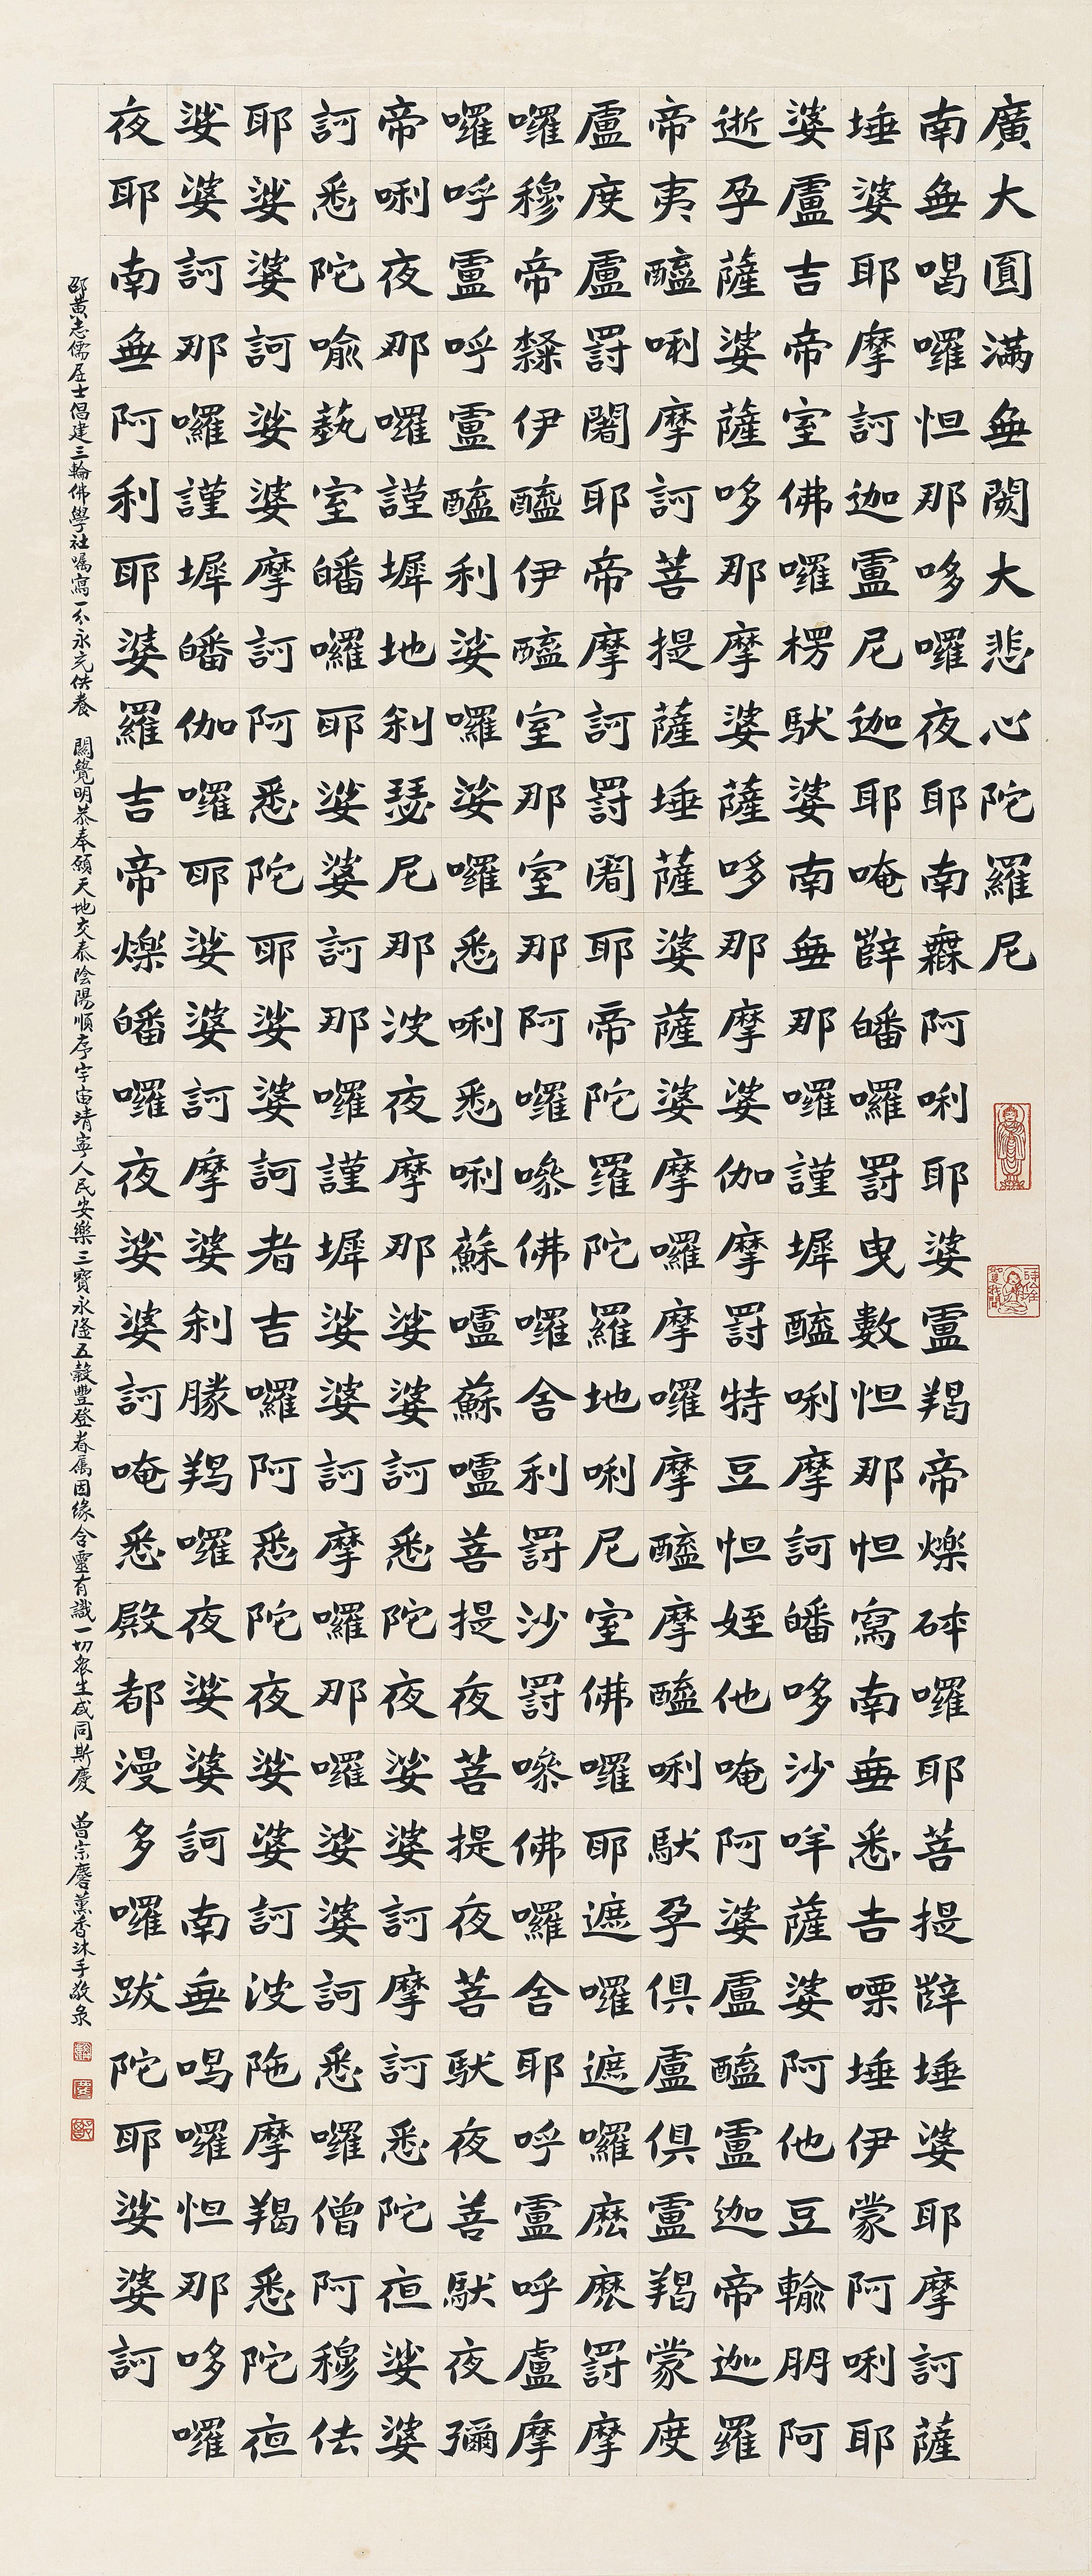 廣大圓滿無闕大悲心陀羅尼
南無喝囉怛那哆囉夜耶南無阿唎耶婆盧羯帝爍砵囉耶菩提薩埵婆耶摩訶薩
埵婆耶摩訶迦盧尼迦耶唵薩皤囉罰曳數怛那怛寫南無悉吉嘌埵伊蒙阿唎耶
婆盧吉帝室佛囉楞馱婆南無那囉謹墀醯唎摩訶皤哆沙咩薩婆阿他豆輸朋阿
逝孕薩婆薩哆那摩婆薩哆那摩婆伽摩罰特豆怛姪他唵阿婆盧醯盧迦帝迦羅
帝夷醯唎摩訶菩提薩埵薩婆薩婆摩囉摩囉摩醯摩醯唎馱孕俱盧俱盧羯蒙度
盧度盧罰闍耶帝摩訶罰闍耶帝陀羅陀羅地唎尼室佛囉耶遮囉遮囉麽麽罰摩
囉穆帝隸伊醯伊醯室那室那阿囉嘇佛囉舍利罰沙罰嘇佛囉舍耶呼盧呼盧摩
囉呼盧呼盧醯利娑囉娑囉悉唎悉唎蘇嚧蘇嚧菩提夜菩提夜菩馱夜菩馱夜彌
帝唎夜那囉謹墀地利瑟尼那波夜摩那娑婆訶悉陀夜娑婆訶摩訶悉陀夜娑婆
訶悉陀喻藝室皤囉耶娑婆訶那囉謹墀娑婆訶摩囉那囉娑婆訶悉囉僧阿穆佉
耶娑婆訶娑婆摩訶阿悉陀耶娑婆訶者吉囉阿悉陀夜娑婆訶波陁摩羯悉陀夜
娑婆訶那囉謹墀皤伽囉耶娑婆訶摩婆利勝羯囉夜娑婆訶南無喝囉怛那哆囉
夜耶南無阿利耶婆羅吉帝爍皤囉夜娑婆訶唵悉殿都漫多囉跋陀耶娑婆訶
邵黃志儒居士倡建三輪佛學社囑寫一分永充供養 關覺明恭奉願天地交泰陰陽順序宇宙清寧人民安樂三寶永隆五穀豐登眷屬因緣含靈有識一切衆生咸同斯慶 曾宗麿薰香沐手敬彔